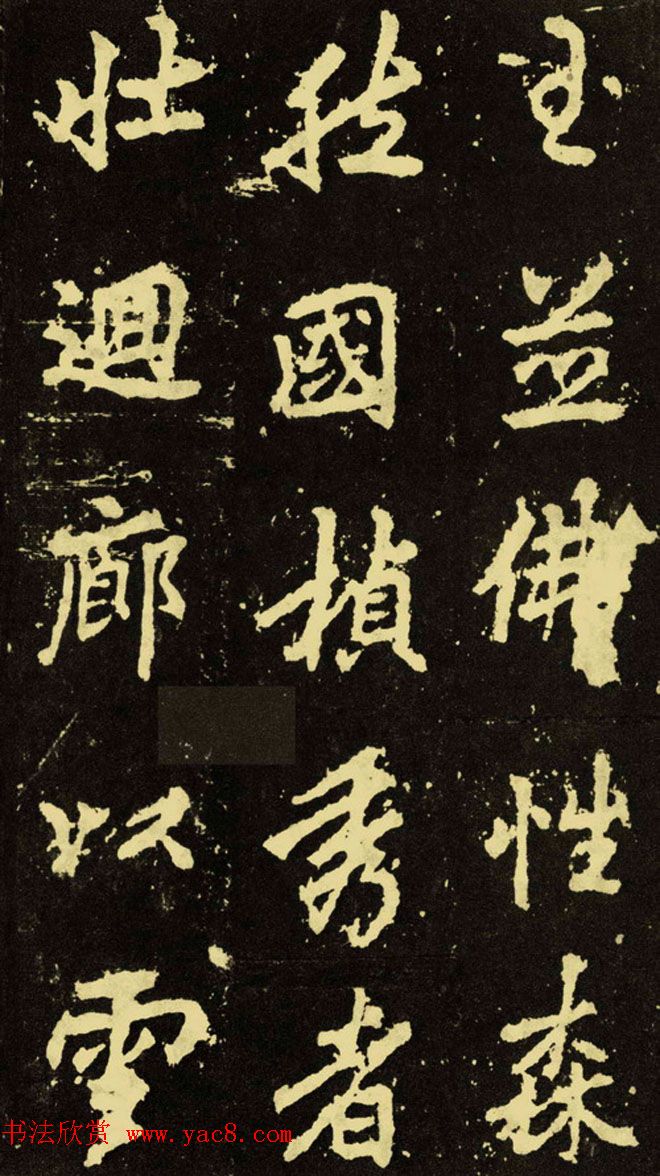 玉並佛性森
國楨秀者
壯迴廊以雲
书法欣赏 www.yac8.com